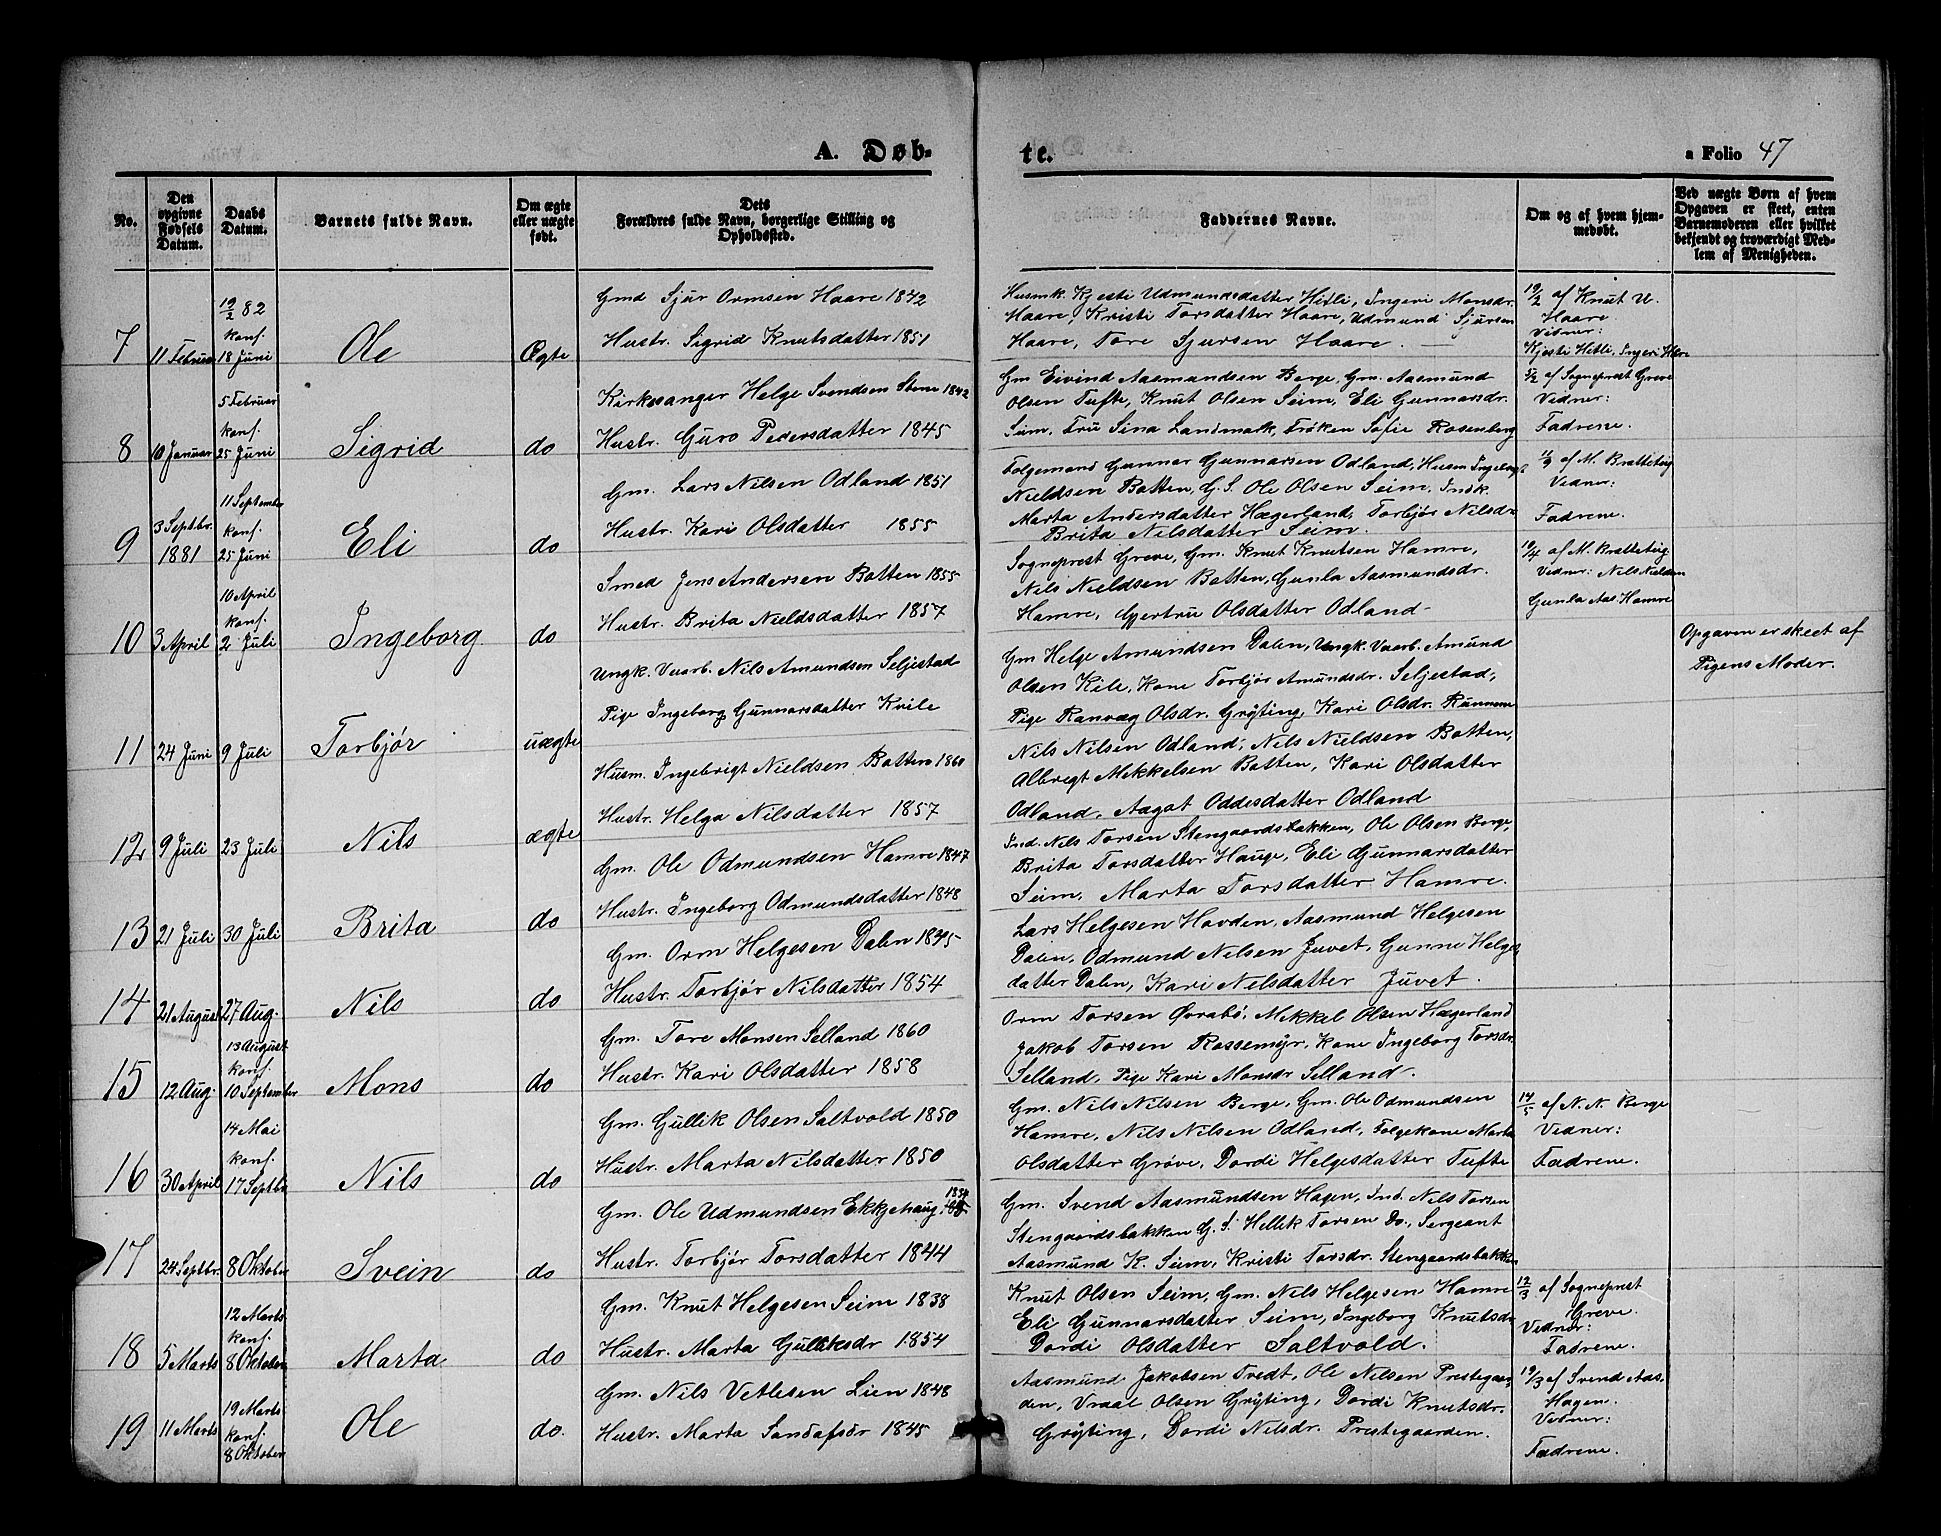 A. Døb-
te.
a Folio 47
No.
Den opgivne Fødsels Datum.
Daabs Datum.
Barnets fulde Navn.
Om ægte eller uægte født.
Dets Forældres fulde Navn, borgerlige Stilling og Opholdssted.
Faddernes Navne.
Om og af hvem hjemmedøbt.
Ved uægte Børn af hvem Opgaven er skeet, enten Barnemoderen eller hvilket bekjendt og troværdigt Medlem af Menigheden.
7
11 Februar
19/2 82
konf.
18 Juni
Ole
Ægte
Gmd Sjur Ormsen Haare 1842
Hustr. Sigrid Knutsdatter 1851
Husmk. Kjesti Udmundsdatter Hitli, Ingeri Monsdr.
Haare, Kristi Torsdatter Haare, Udmund Sjursen
Haare, Tore Sjursen Haare.
19/2 af Knut U.
Haare
Vidner:
Kjesti Hitli, Ingeri Hare
8
10 Januar
5 Februar
konf.
25 Juni
Sigrid
do
Kirkesanger Helge Svendsen Stene 1842
Hustr. Guro Pedersdatter 1845
Gm Eivind Aasmundsen Berge, Gm. Aasmund
Olsen Tufte, Knut Olsen Seim, Eli Gunnarsdr.
Seim, Fru Sina Landmark, Frøken Sofie Rosenberg
5/2 af Sogneprest Greve
Vidner:
Fadrene.
9
3 Septbr.
1881
11 September
konf.
25 Juni
Eli
do
Gm. Lars Nilsen Odland 1851
Hustr. Kari Olsdatter 1855
Folgemand Gunnar Gunnarsen Odland, Husm Ingebrigt
Nieldsen Botten, G. S. Ole Olsen Seim, Indk.
Marta Andersdatter Hægerland, Torbjør Nilsdr
Brita Nilsdatter Seim.
11/9 af M. Bratteteig
Vidner:
Fadrene.
10
3 April
10 April
konf.
2 Juli
Ingeborg
do
Smed Jens Andersen Botten 1855
Hustr. Brita Nieldsdatter 1857
Sogneprest Greve, Gm. Knut Knutsen Hamre,
Nils Nieldsen Botten, Gunla Aasmundsdr.
Hamre, Gjertru Olsdatter Odland
10/4 af M. Bratteteig
Vidner: Nils Nieldsen
Gunla Aas Hamre
11
24 Juni
9 Juli
Torbjør
uægte
Ungk. Vaarb. Nils Amundsen Seljestad
Pige Ingeborg Gunnarsdatter Kvile
Gm Helge Amundsen Dalen, Ungk. Vaarb. Amund
Olsen Kile, Kone Torbjør Amundsdr. Seljestad,
Pige Ranvæg Olsdr. Grøting, Kari Olsdr. Runnene
Opgaven er skeet af
Pigens Moder.
12
9 Juli
23 Juli
Nils
ægte
Husm. Ingebrigt Nieldsen Botten 1860
Hustr. Helga Nilsdatter 1857
Nils Nilsen Odland, Nils Nieldsen Botten,
Albregt Mekkelsen Botten, Kari Olsdatter
Odland, Aagat Oddesdatter Odland
13
21 Juli
30 Juli
Brita
do
Gm. Ole Odmundsen Hamre 1847
Hustr. Ingeborg Odmundsdatter 1848
Ind. Nils Torsen Stengaardsbakken, Ole Olsen Berge,
Brita Torsdatter Hauge, Eli Gunnarsdatter
Seim, Marta Torsdatter Hamre.
14
21 August
27 Aug.
Nils
do
Gm. Orm Helgesen Dalen 1845
Hustr. Torbjør Nilsdatter 1854
Lars Helgesen Hovden, Aasmund Helgesen
Dalen, Odmund Nilsen Juvet, Gunne Helges
datter Dalen, Kari Nilsdatter Juvet.
15
12 Aug.
13 August
konf.
10 September
Mons
do
Gm. Tore Monsen Selland 1860
Hustr. Kari Olsdatter 1858
Orm Torsen Øvrabø, Mekkel Olsen Hægerland
Jakob Torsen Rossemyr, Kone Ingeborg Torsdr.
Selland, Pige Kari Monsdr Selland.
16
30 April
14 Mai
konf.
17 Septbr
Nils
do
Gm. Gullik Olsen Saltvold 1850
Hustr. Marta Nilsdatter 1850
Gm. Nils Nilsen Berge, Gm. Ole Odmundsen
Hamre, Nils Nilsen Odland, Folgekone Marta
Olsdatter Grøve, Dordi Helgesdatter Tufte
14/5 af N. N. Berge
Vidner:
Fadrene.
17
24 Septbr.
8 Oktober
Svein
do
Gm. Ole Udmundsen Ekkjehaug 1834
Hustr. Torbjør Torsdatter 1844
Gm. Svend Aasmundsen Hagen, Ind. Nils Torsen
Stengaardsbakken G. S. Hellik Torsen Do., Sergeant
Aasmund K. Seim, Kristi Torsdr. Stengaardsbakken
18
5 Marts
12 Marts
konf.
8 Oktober
Marta
do
Gm. Knut Helgesen Seim 1838
Hustr. Marta Gulliksdr 1854
Knut Olsen Seim, Gm. Nils Helgesen Hamre
Eli Gunnarsdatter Seim, Ingeborg Knutsdr
Dordi Olsdatter Saltvold.
12/3 af Sogneprest
Greve.
Vidner:
Fadrene.
19
11 Marts
19 Marts
konf.
8 Oktober
Ole
do.
Gm. Nils Vetlesen Lien 1848
Hustr. Marta Sandafsdr 1845
Aasmund Jakobsen Tvedt, Ole Nilsen Prestegaar-
den, Vraal Olsen Grøting, Dordi Knutsdr.
Grøting, Dordi Nilsdr. Prestegaarden.
19/3 af Svend Aas.
Hagen.
Vidner:
Fadrene.